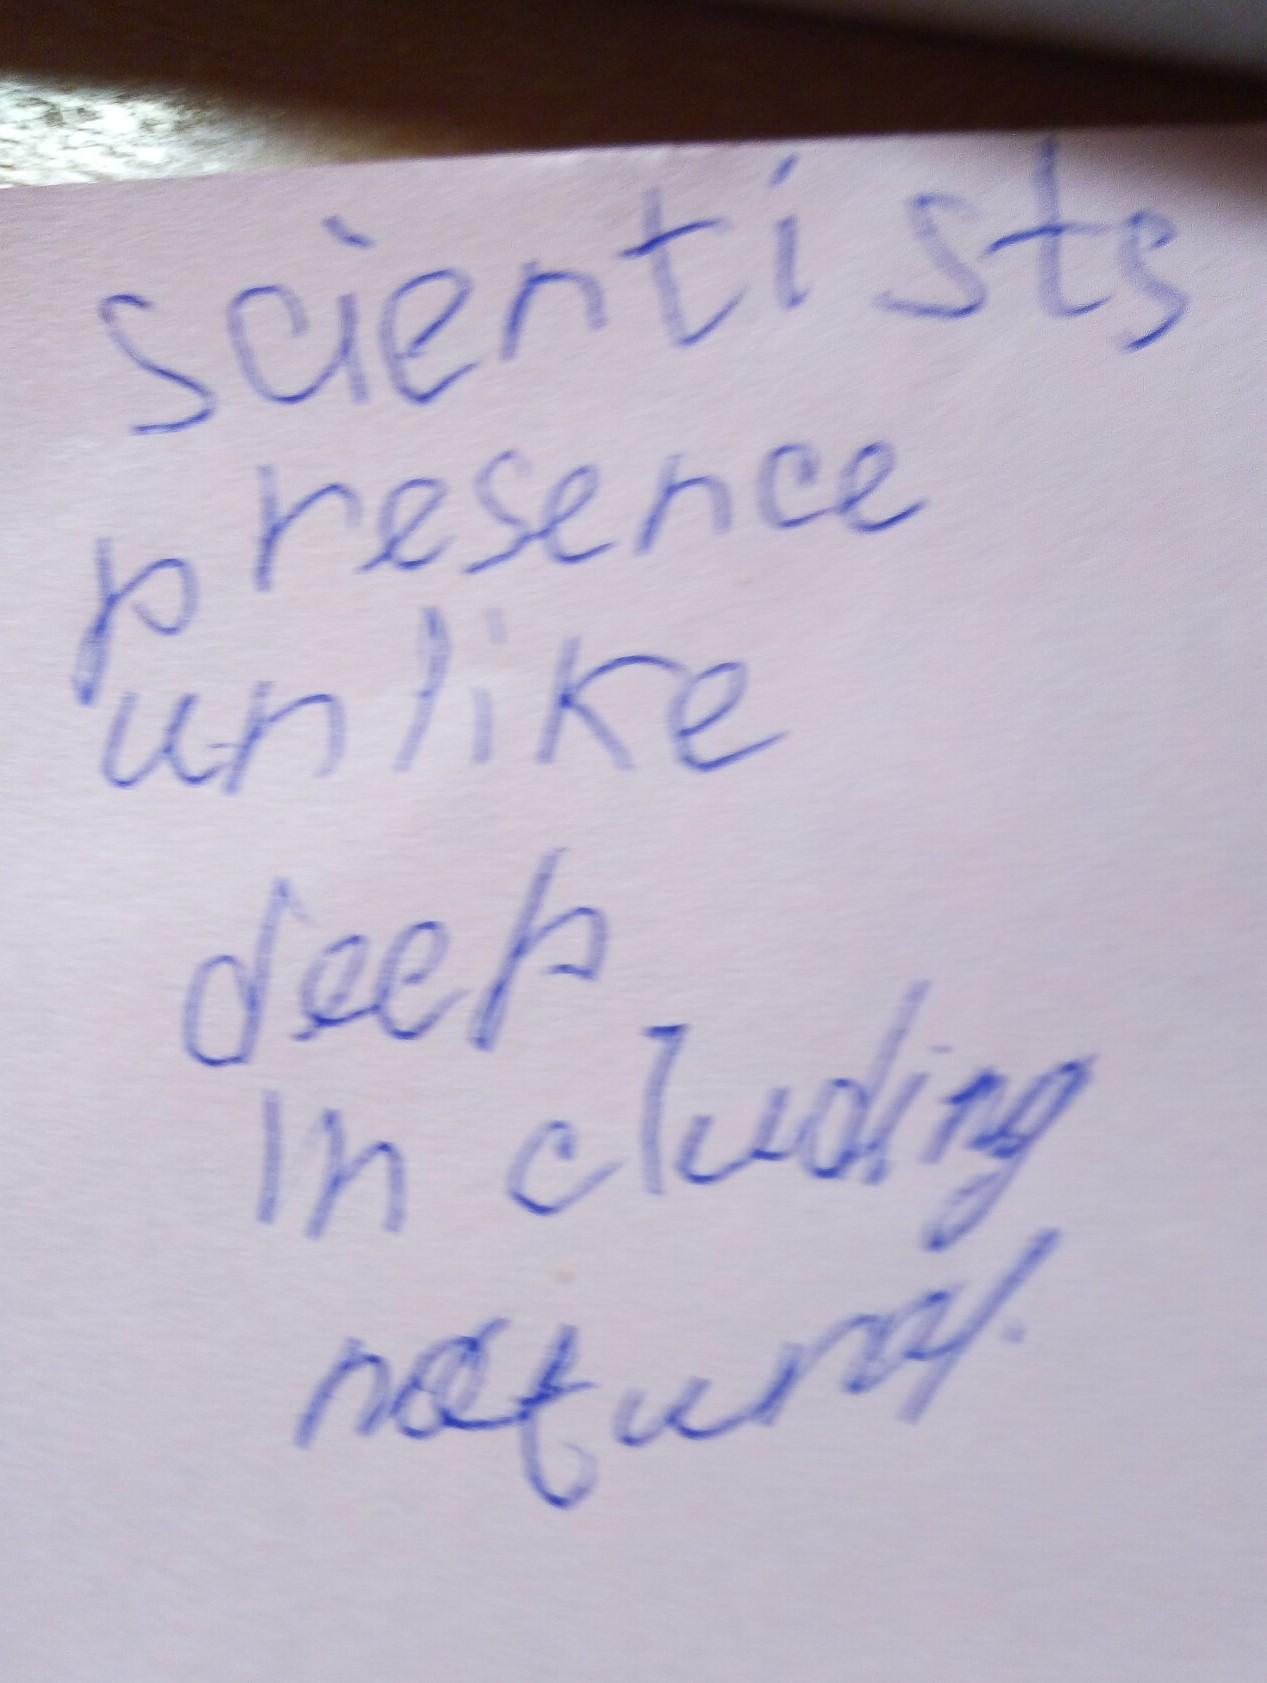 scientists
presence
unlike
deep
including
natural